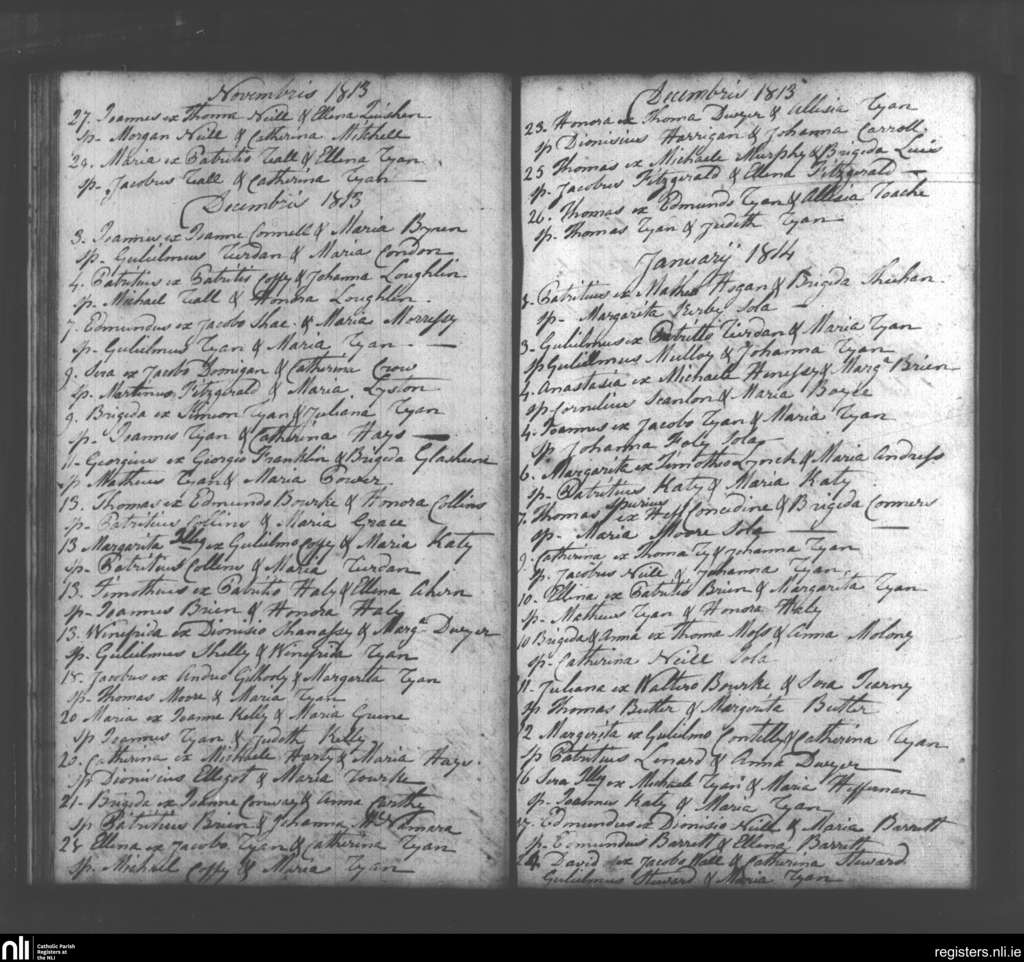 Novembris 1813
27. Joannes ex Thoma Neill & Ellena Luishan
sp. Morgan Neill & Catherina Mitchell
28. Maria ex Patritio Wall & Ellena Ryan
sp. Jacobus Wall & Catharina Ryan
Decembris 1813
3. Joannes ex Joanne Connell & Maria Byren
sp. Gulielmus Rierdan & Maria Condon
4. Patritius ex Patritio Coffy & Johanna Loughlin
sp. Michael Wall & Honora Loughlin
7. Edmundus ex Jacobo Shae & Maria Morrissy
sp. Gulielmus Ryan & Maria Ryan
9. Sera ex Jacobo Donigan & Catherine Crow
sp. Martinus Fitzgerald & Maria
9. Brigida ex Simon Ryan & Juliana Ryan
sp. Joannes Ryan & Catherina Hays
11. Georgius ex Georgio Franklin & Brigida
sp Matheus Ryan & Maria Power
13. Thomas ex Edmundo Bourke & Honora Collins
sp. Patritius Collins & Maria Grace
13 Margarita Illeg ex Gulielmo Coffy & Maria Katy
sp. Patritius Collins & Maria Rierdan
13. Timotheus ex Patritio Haly & Ellena Ahern
sp. Joannes Brien & Honora Haly
13. Winefrida ex Dionisio Shanassy & Marga. Dwyer
sp. Gulielmus Shelly & Winefrida Ryan
18. Jacobus ex Andreo Gilhooly & Margarita Ryan
sp. Thomas Moore & Maria Ryan
20 Maria ex Joanne Kelly & Maria Greene
sp Joannes Ryan & Judith Kelly
20. Catherina ex Michaele Harty & Maria Hays.
sp Dionisius Elligot & Maria Rourke
21. Brigida ex Joanne Conway & Anna Carthy
sp Patritius Brien & Johanna McNamara
25 Ellena ex Jacobo Ryan & Catherina Ryan
sp. Michael Coffy & Maria Ryan
Decembris 1813
23. Honora ex Thoma Dwyer & Allisia Ryan
sp Dionisius Harrigan & Johanna Carroll.
25 Thomas ex Michaele Murphy & Brigida
sp. Jacobus Fitzgerald & Ellena Fitzgerald
26. Thomas ex Edmundo Ryan & Allisia Roache
sp. Thomas Ryan & Judith Ryan
Januarij 1814
Patritius ex Matheo Hogan & Brigida Sheehan.
sp. Margarita Kirby Sola
3. Gulielmus ex Patritio Rierdan & Maria Ryan
sp Gulielmus Mulloy & Johanna Ryan
4. Anastasia ex Michaele Henessy & Marga. Brien
sp Cornelius Scanlon & Maria Boyce
4. Joannes ex Jacobo Ryan & Maria Ryan
sp Johanna Foly Sola
6. Margarita ex Timotheo Lynch & Maria Andress
sp. Patritius Katy & Maria Katy
7. Thomas Spurius ex Concidine & Brigida Conners
sp. Maria Moore Sola
9. Catherina ex Thoma Ry & Johanna Ryan
sp. Jacobus Neill & Johanna Ryan
10. Ellena ex Patritio Brien & Margarita Ryan
sp. Matheus Ryan & Honora Haly
10 Brigida & Anna ex Thoma Moss & Anna Molony
sp. Catherina Neill Sola
11. Juliana ex Waltero Bourke & Sera Kearny
sp Thomas Butler & Margarita Butler
12 Margarita ex Gulielmo Contilly & Catherina Ryan
sp Patritius Lenard & Anna Dwyer
16 Sera Illeg ex Michaele Ryan & Maria Heffernan
sp. Joannes Katy & Maria Ryan
17. Edmundus ex Dionisio Neill & Maria Barrett
sp. Edmundus Barrett & Ellena Barrett
24. David ex Jacobo Wall & Catherina Steward
Gulielmus Steward & Maria Ryan
nli
Catholic Parish
Registers at
the NLI
registers.nli.ie